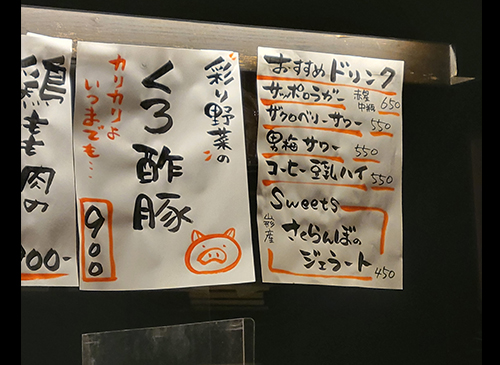 鶏もも肉の
00-
彩り野菜の
くろ酢豚
カリカリよ
いつまでも…
900
おすすめドリンク
サッポロラガー 赤星 中瓶 650
ザクロベリーサワー 550
男梅サワー 550
コーヒー豆乳ハイ 550
Sweets
山形産 さくらんぼの
ジェラート 450